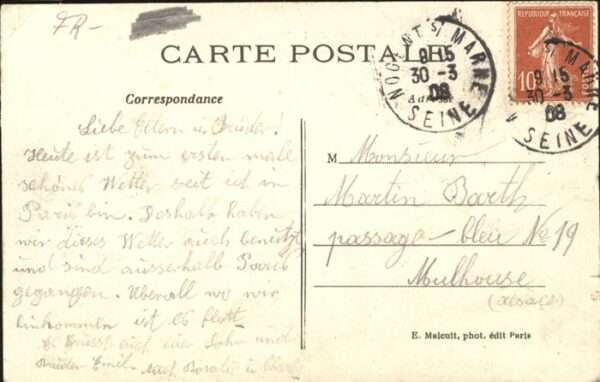 FR-
CARTE POSTALE
NOGENT St MARNE
9 15
30-3
08
SEINE
REPUBLIQUE FRANÇAISE
10
St MARNE
9 15
30-3
08
SEINE
Correspondance
Liebe Eltern u. Bruder!
Heute ist zum ersten male
schönes Wetter seit ich in
Paris bin. Deshalb haben
wir dieses Wetter auch benützt
und sind ausserhalb Paris
gegangen. Überall wo wir
hinkommen ist es flott
Es grüsst euch euer Sohn und
Bruder Emil. auch Rosalie u
M Monsieur
Martin Barth
passage-bleu No 19
Mulhouse
(Alsace)
E. Malcuit, phot. édit Paris